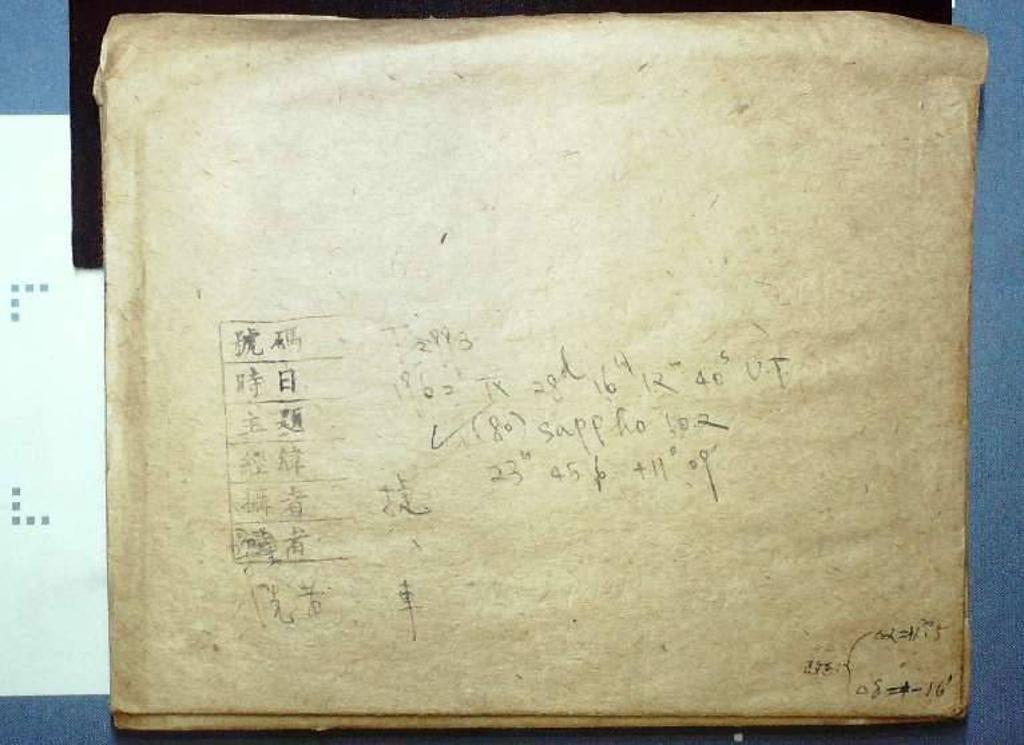 號碼 2993
時日 1962 IX 28d 16h 12m 40s U.T
主題 (80) Sappho 502
經緯 23h 45.6 +11° 09'
攝者 捷
讀者
洗者 車
改正: Δα=+1m.5
Δδ=-16'